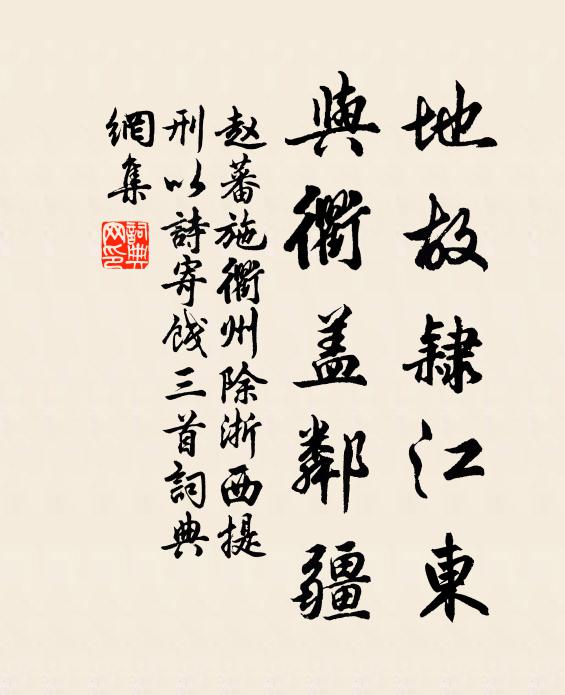 地故隷江東
與衢盖鄰疆
赵蕃施衢州除浙西提
刑以詩寄餞三首詞典
網集
詞典
网印